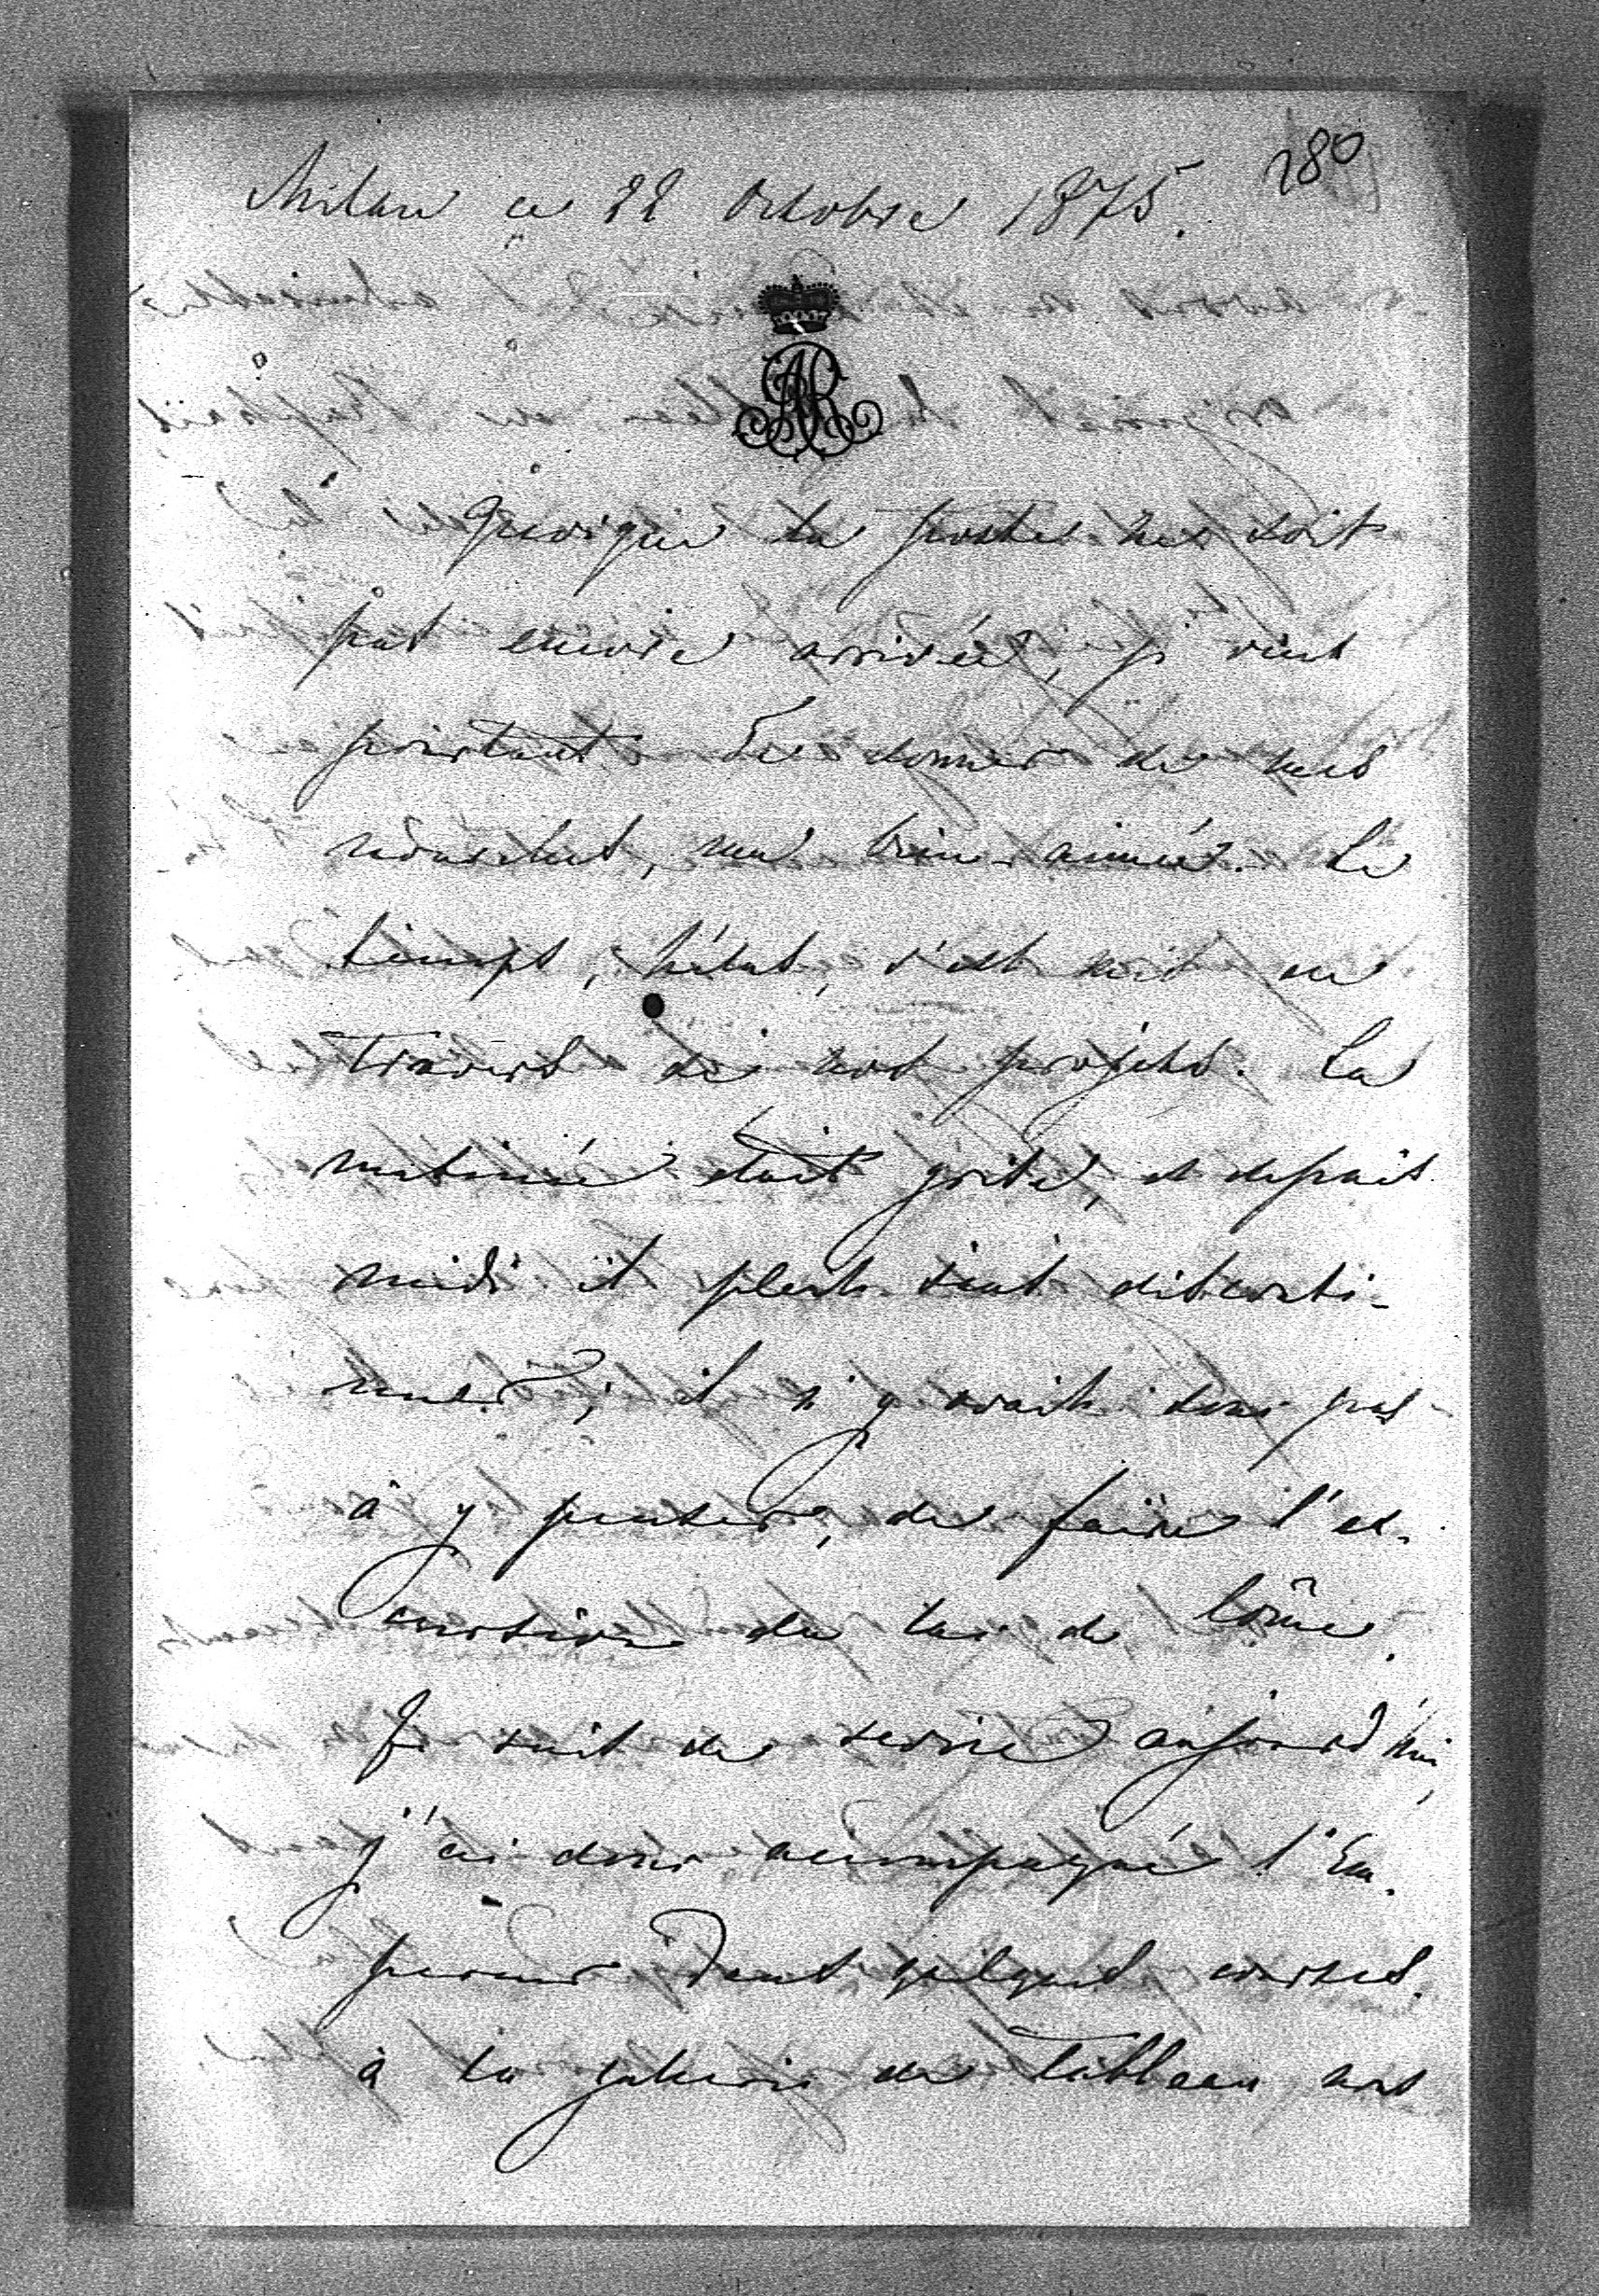 280
Milan ce 22 Octobre 1875.
AR
Quoique la poste ne soit
pas encore arrivée, je viens
pourtant Te donner de mes
nouvelles, ma bien-aimée. Le
temps, hélas, s'est mis en
travers de nos projets. La
matinée était grise, et depuis
midi il pleut tout distincte-
ment; il n'y avait donc pas
à y penser, de faire l'ex-
cursion du lac de Côme.
Je suis de service aujourd'hui,
j'ai donc accompagné l'Em-
pereur dans quelques courses.
à la galerie de tableau nous